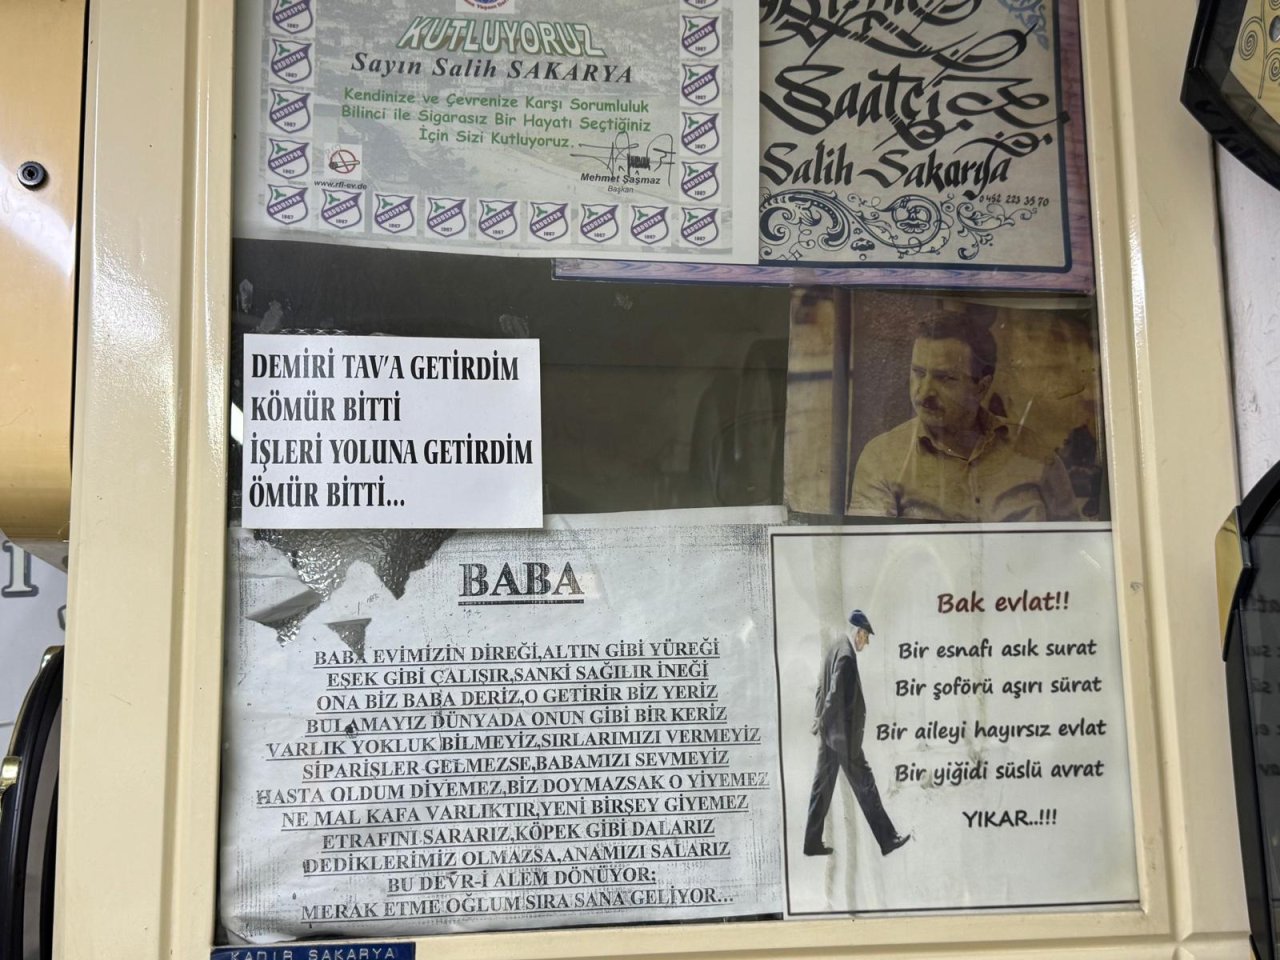 KUTLUYORUZ
Sayın Salih SAKARYA
Kendinize ve Çevrenize Karşı Sorumluluk
Bilinci ile Sigarasız Bir Hayatı Seçtiğiniz
İçin Sizi Kutluyoruz.
Mehmet Şaşmaz
Başkan
www.rfl-ev.de
ORDUSPOR
1967
Saatçi
Salih Sakarya
0 452 223 35 70
DEMİRİ TAV'A GETİRDİM
KÖMÜR BİTTİ
İŞLERİ YOLUNA GETİRDİM
ÖMÜR BİTTİ...
BABA
BABA EVİMİZİN DİREĞİ,ALTIN GİBİ YÜREĞİ
EŞEK GİBİ ÇALIŞIR,SANKİ SAĞILIR İNEĞİ
ONA BİZ BABA DERİZ,O GETİRİR BİZ YERİZ
BULAMAYIZ DÜNYADA ONUN GİBİ BİR KERİZ
VARLIK YOKLUK BİLMEYİZ,SIRLARIMIZI VERMEYİZ
SİPARİŞLER GELMEZSE,BABAMIZI SEVMEYİZ
HASTA OLDUM DİYEMEZ,BİZ DOYMAZSAK O YİYEMEZ
NE MAL KAFA VARLIKTIR,YENİ BİRŞEY GİYEMEZ
ETRAFINI SARARIZ,KÖPEK GİBİ DALARIZ
DEDİKLERİMİZ OLMAZSA,ANAMIZI SALARIZ
BU DEVR-İ ALEM DÖNÜYOR;
MERAK ETME OĞLUM SIRA SANA GELİYOR...
Bak evlat!!
Bir esnafı asık surat
Bir şoförü aşırı sürat
Bir aileyi hayırsız evlat
Bir yiğidi süslü avrat
YIKAR..!!!
KADİR SAKARYA